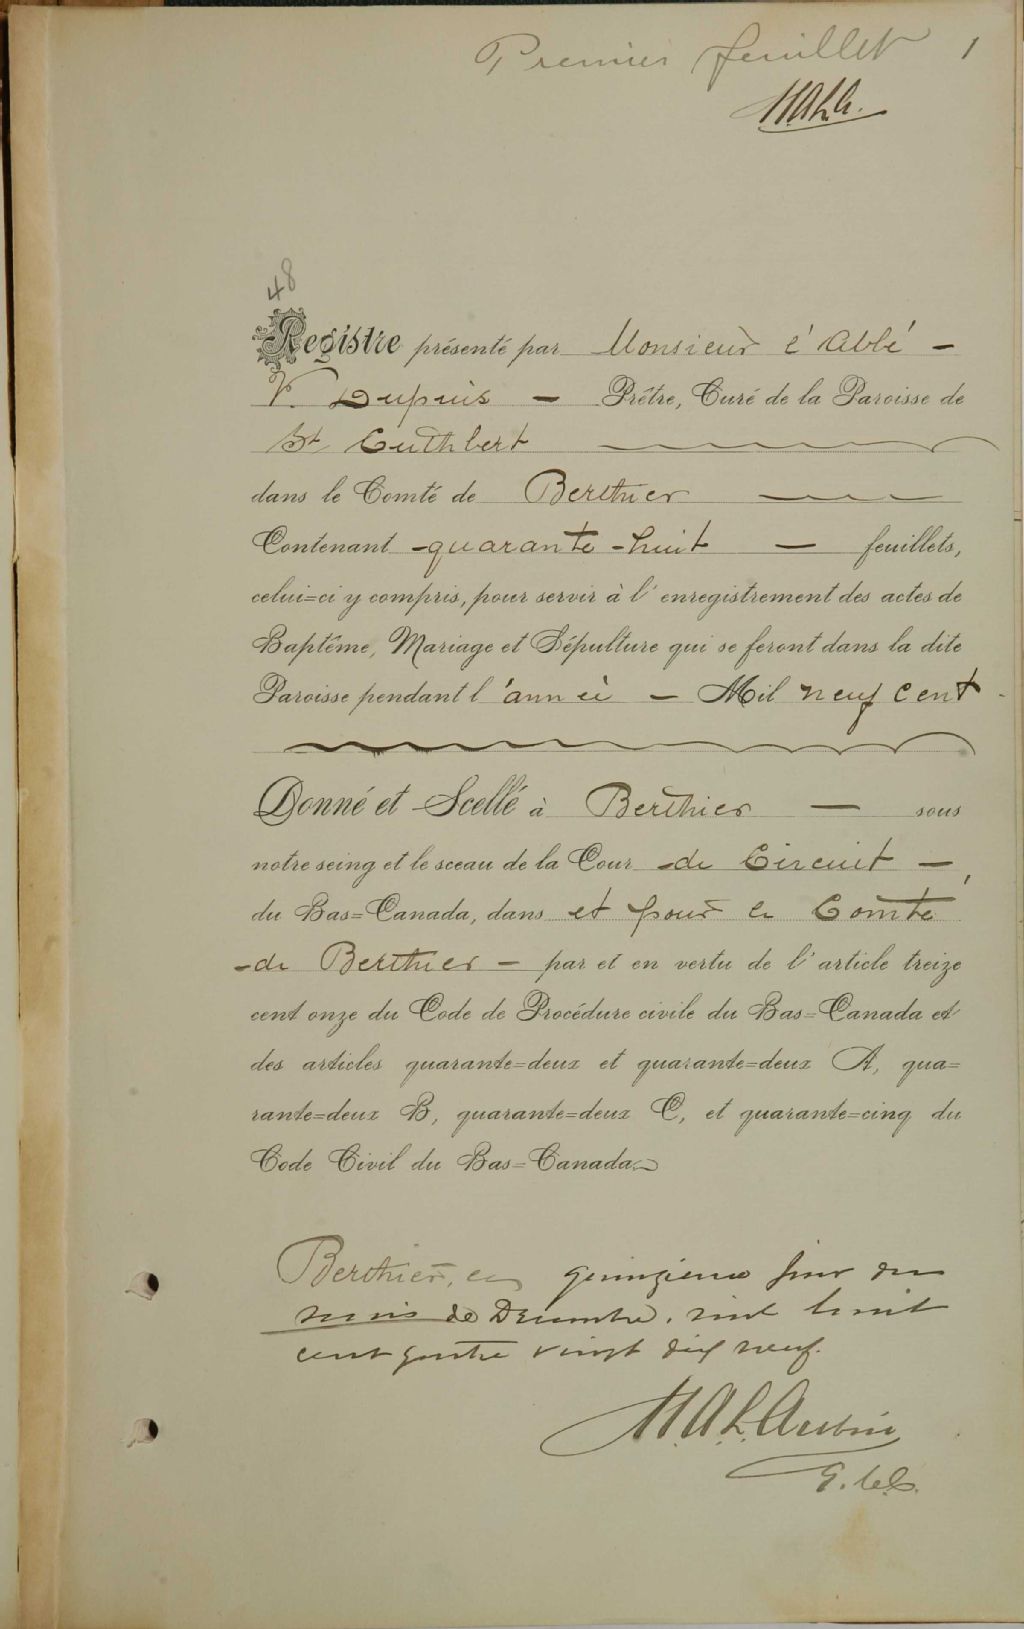 Premier feuillet 1
H.A.L.A.
48
Registre présenté par Monsieur l'Abbé -
V. Dupuis - Prêtre, Curé de la Paroisse de
St Cuthbert
dans le Comté de Berthier
Contenant quarante-huit - feuillets,
celui=ci y compris, pour servir à l'enregistrement des actes de
Baptême, Mariage et Sépulture qui se feront dans la dite
Paroisse pendant l'année - Mil neuf cent
Donné et Scellé à Berthier - sous
notre seing et le sceau de la Cour de Circuit -,
du Bas=Canada, dans et pour le Comté
de Berthier - par et en vertu de l'article treize
cent onze du Code de Procédure civile du Bas=Canada et
des articles quarante=deux et quarante=deux A, qua=
rante=deux B, quarante=deux C, et quarante=cinq du
Code Civil du Bas=Canada.
Berthier, le quinzieme jour du
mois de Decembre, mil huit
cent quatre vingt dix neuf.
H.A.L. Aubin
G.C.C.